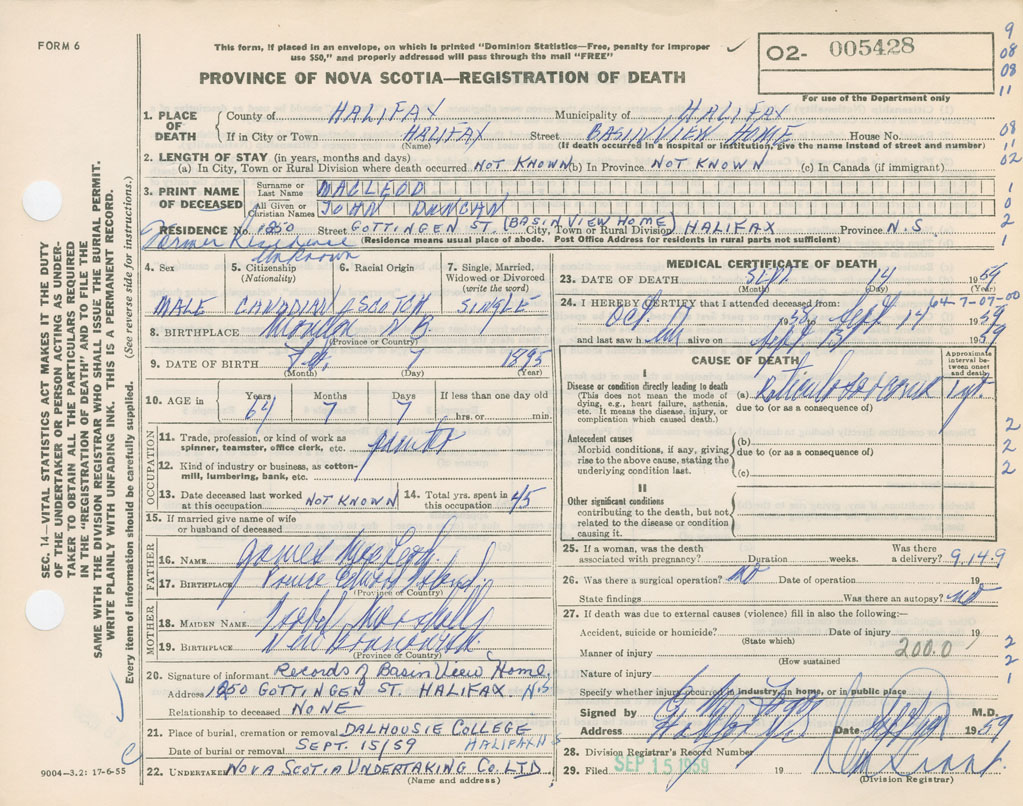 FORM 6
This form, if placed in an envelope, on which is printed "Dominion Statistics—Free, penalty for improper
use $50," and properly addressed will pass through the mail "FREE"
PROVINCE OF NOVA SCOTIA—REGISTRATION OF DEATH
O2- 005428
For use of the Department only
9
08
08
11
08
11
02
1
0
2
1
SEC. 14—VITAL STATISTICS ACT MAKES IT THE DUTY
OF THE UNDERTAKER OR PERSON ACTING AS UNDER-
TAKER TO OBTAIN ALL THE PARTICULARS REQUIRED
IN THE "REGISTRATION OF DEATH" AND TO FILE THE
SAME WITH THE DIVISION REGISTRAR WHO SHALL ISSUE THE BURIAL PERMIT.
WRITE PLAINLY WITH UNFADING INK. THIS IS A PERMANENT RECORD.
Every item of information should be carefully supplied. (See reverse side for instructions.)
1. PLACE OF DEATH
County of HALIFAX Municipality of HALIFAX
If in City or Town HALIFAX Street BASIN VIEW HOME House No.
(Name) (If death occurred in a hospital or institution, give the name instead of street and number)
2. LENGTH OF STAY (in years, months and days)
(a) In City, Town or Rural Division where death occurred NOT KNOWN (b) In Province NOT KNOWN (c) In Canada (if immigrant)
3. PRINT NAME OF DECEASED
Surname or Last Name MACLEOD
All Given or Christian Names JOHN DUNCAN
RESIDENCE No. 1850 Street GOTTINGEN ST. (BASIN VIEW HOME) City, Town or Rural Division HALIFAX Province N.S.
(Residence means usual place of abode. Post Office Address for residents in rural parts not sufficient)
Former Residence
Unknown
4. Sex 5. Citizenship (Nationality) 6. Racial Origin 7. Single, Married, Widowed or Divorced (write the word)
MALE CANADIAN SCOTCH SINGLE
8. BIRTHPLACE N B
(Province or Country)
9. DATE OF BIRTH Feb. 7 1895
(Month) (Day) (Year)
10. AGE in Years Months Days If less than one day
64 7 7 hrs. or min.
OCCUPATION
11. Trade, profession, or kind of work as
spinner, teamster, office clerk, etc. painter
12. Kind of industry or business, as cotton-
mill, lumbering, bank, etc.
13. Date deceased last worked
at this occupation NOT KNOWN
14. Total yrs. spent in
this occupation 45
15. If married give name of wife
or husband of deceased
FATHER
16. NAME James MacLeod
17. BIRTHPLACE Prince Edward Island
(Province or Country)
MOTHER
18. MAIDEN NAME Isobel Marshall
19. BIRTHPLACE New Brunswick
(Province or Country)
20. Signature of informant Records of Basin View Home,
Address 1850 GOTTINGEN ST. HALIFAX N.S
Relationship to deceased NONE
21. Place of burial, cremation or removal DALHOUSIE COLLEGE
Date of burial or removal SEPT. 15/59 HALIFAX N S
22. UNDERTAKER NOVA SCOTIA UNDERTAKING CO. LTD
(Name and address)
9004—3.2: 17-6-55
MEDICAL CERTIFICATE OF DEATH
23. DATE OF DEATH Sept. 14 1959
(Month) (Day) (Year)
24. I HEREBY CERTIFY that I attended deceased from: 64-7-07-00
Oct. 17 1958 Sept 14 1959
and last saw him alive on Sept 13 1959
CAUSE OF DEATH
Approximate interval between onset and death
I
Disease or condition directly leading to death
(This does not mean the mode of
dying, e.g., heart failure, asthenia,
etc. It means the disease, injury, or
complication which caused death.)
(a) Reticulosarcoma 1 yr.
due to (or as a consequence of)
Antecedent causes
Morbid conditions, if any, giving
rise to the above cause, stating the
underlying condition last.
(b)
due to (or as a consequence of)
(c)
II
Other significant conditions
contributing to the death, but not
related to the disease or condition
causing it.
2
2
2
25. If a woman, was the death
associated with pregnancy? Duration weeks. Was there
a delivery? 9.14.9
26. Was there a surgical operation? no Date of operation 19
State findings Was there an autopsy? no
27. If death was due to external causes (violence) fill in also the following:—
Accident, suicide or homicide? Date of injury 19
(State which)
Manner of injury 200.0
(How sustained
Nature of injury
Specify whether injury occurred in industry, in home, or in public place
2
2
1
Signed by M.D.
Address Halifax Date 1959
28. Division Registrar's Record Number
29. Filed SEP 15 1959 19
(Division Registrar)